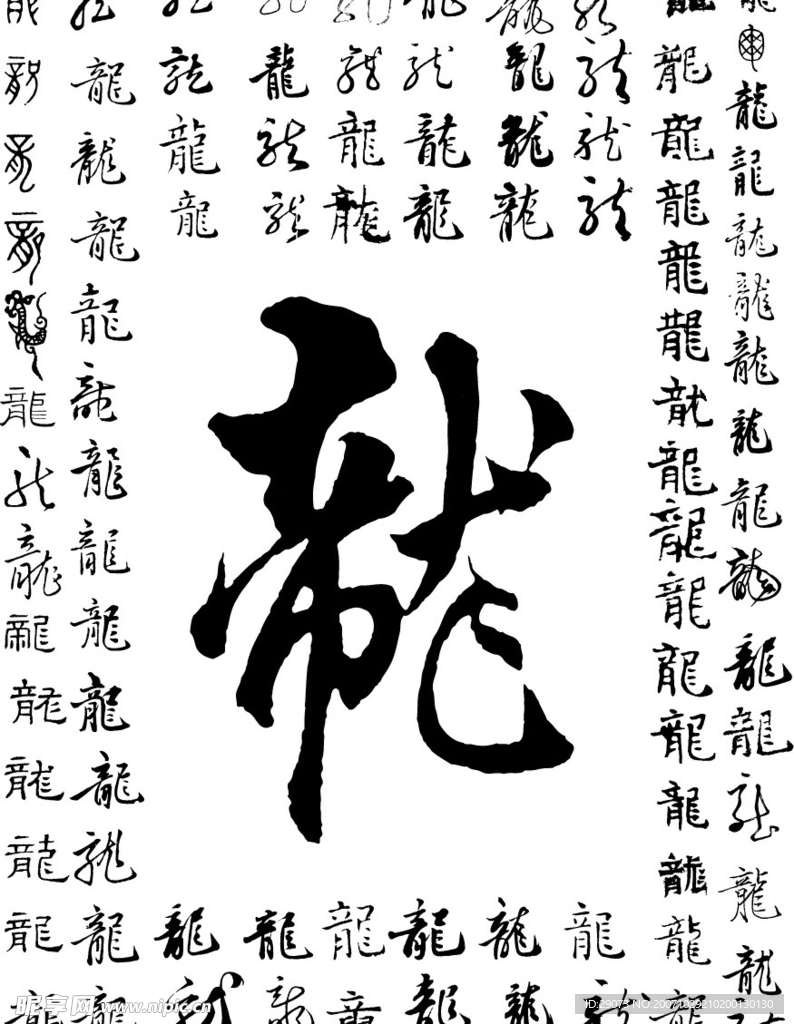 龍龍龍龍龍龍龍龍龍龍
龍龍龍龍龍龍龍龍龍龍
龍龍龍龍龍龍龍龍龍龍
龍龍龍龍龍龍龍龍龍龍
龍龍龍龍
龍龍龍龍
龍龍龍龍
龍
龍龍龍龍
龍龍龍龍
龍龍龍龍
龍龍龍龍
龍龍龍龍
龍龍龍龍龍龍龍龍龍龍
龍龍龍龍龍龍龍龍龍
昵享网 www.nipic.cn
ID:29075 NO:20071029210200130130